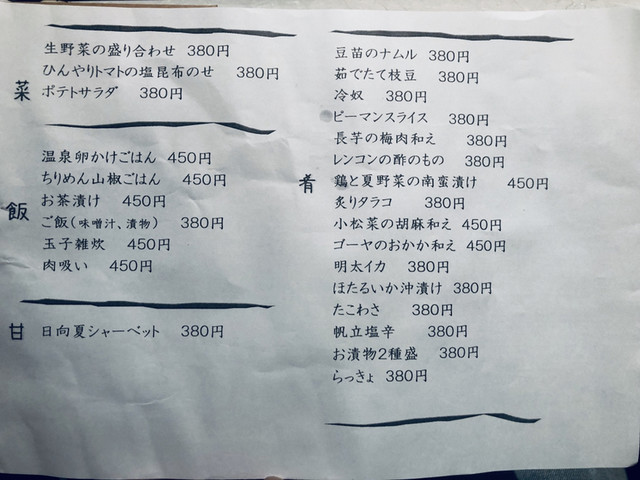 菜
生野菜の盛り合わせ 380円
ひんやりトマトの塩昆布のせ 380円
ポテトサラダ 380円
飯
温泉卵かけごはん 450円
ちりめん山椒ごはん 450円
お茶漬け 450円
ご飯(味噌汁、漬物) 380円
玉子雑炊 450円
肉吸い 450円
甘
日向夏シャーベット 380円
肴
豆苗のナムル 380円
茹でたて枝豆 380円
冷奴 380円
ピーマンスライス 380円
長芋の梅肉和え 380円
レンコンの酢のもの 380円
鶏と夏野菜の南蛮漬け 450円
炙りタラコ 380円
小松菜の胡麻和え 450円
ゴーヤのおかか和え 450円
明太イカ 380円
ほたるいか沖漬け 380円
たこわさ 380円
帆立塩辛 380円
お漬物2種盛 380円
らっきょ 380円